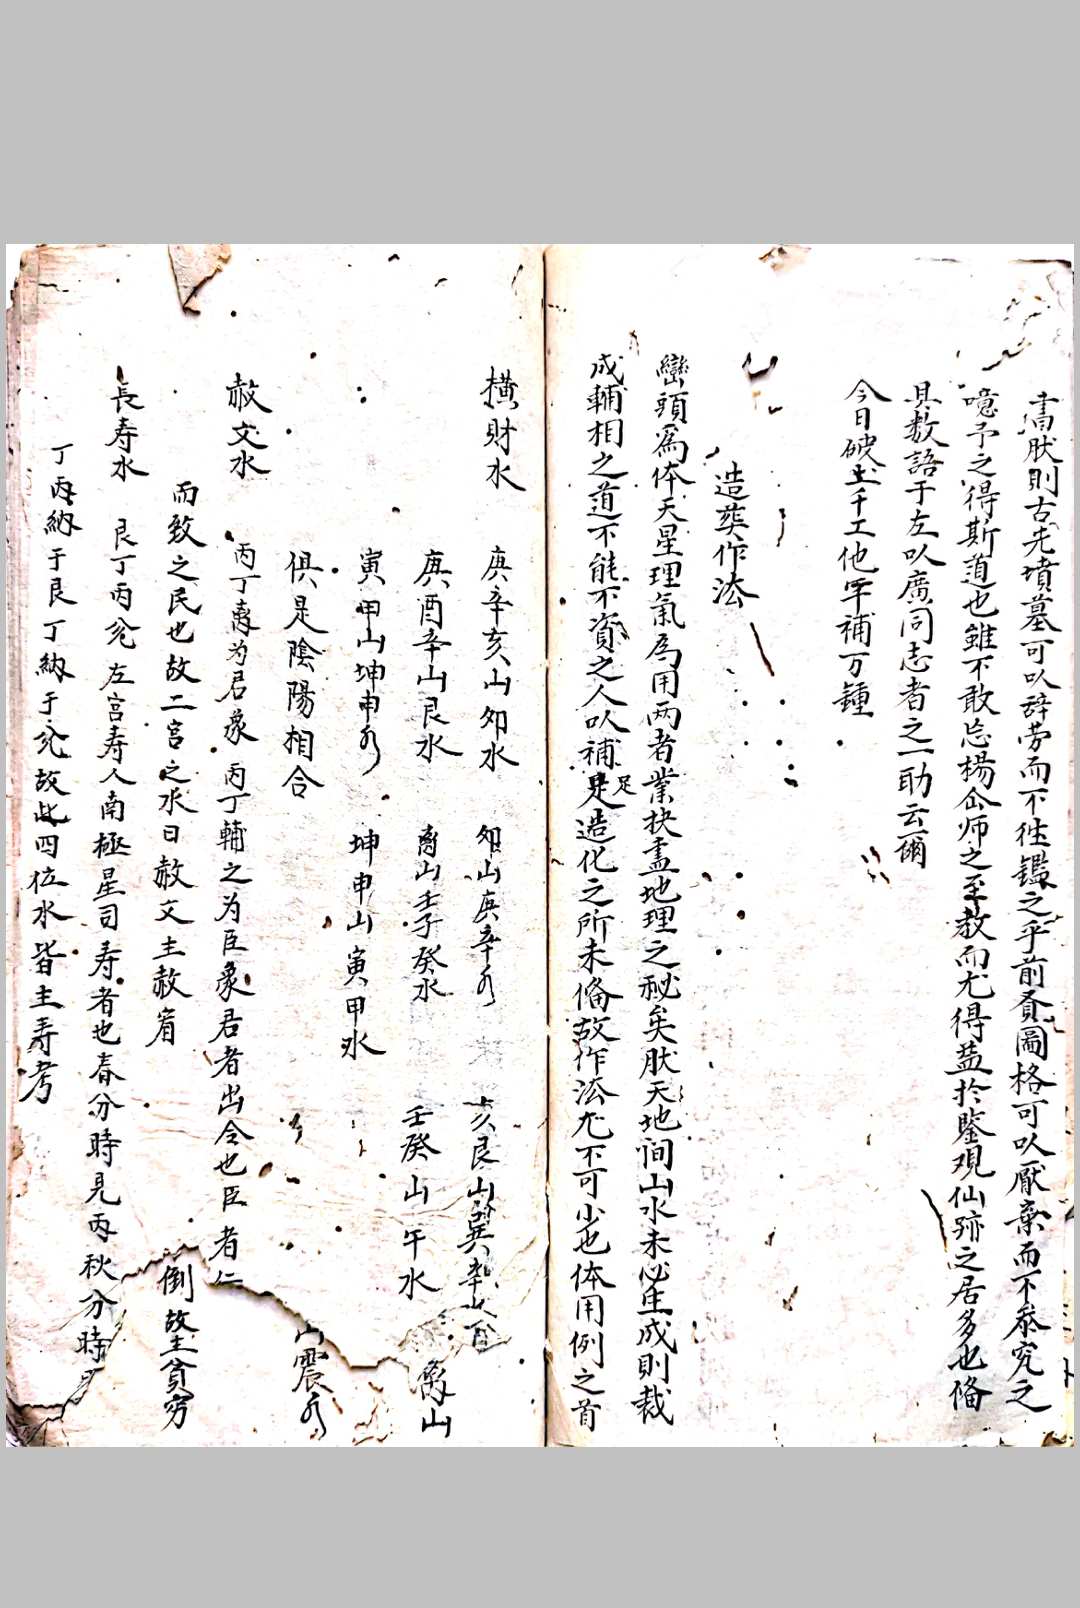 書肰則古先墳墓可以辞劳而不徃鑑之乎前賫圖格可以厭棄而不叅究之
噫予之得斯道也雖不敢忘楊仚师之至教而尤得葢扵鑒观仙跡之居多也俻
具数語于左以廣同志者之一助云爾
今日破土千工他年補万鍾
造葬作法
巒頭爲体天星理氣爲用两者業抉盡地理之秘矣肰天地间山水未必生成則裁
成輔相之道不能不資之人以補足造化之所未俻故作法尤不可少也体用例之首
横財水
庚辛亥山卯水 卯山庚辛水 亥艮山巽辛
庚酉辛山艮水 离山壬子癸水 壬癸山午水 离山
寅甲山坤申水 坤申山寅甲水
俱是陰陽相合 山震水
赦文水
丙丁离为君象丙丁輔之为臣象君者出令也臣者仁
而致之民也故二宫之水曰赦文主赦宥 倒故主貧穷
長寿水
艮丁丙兊左宫寿人南極星司寿者也春分時見丙秋分時
丁丙納于艮丁納于兊故此四位水皆主寿考